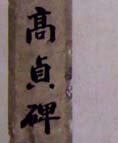 高貞碑